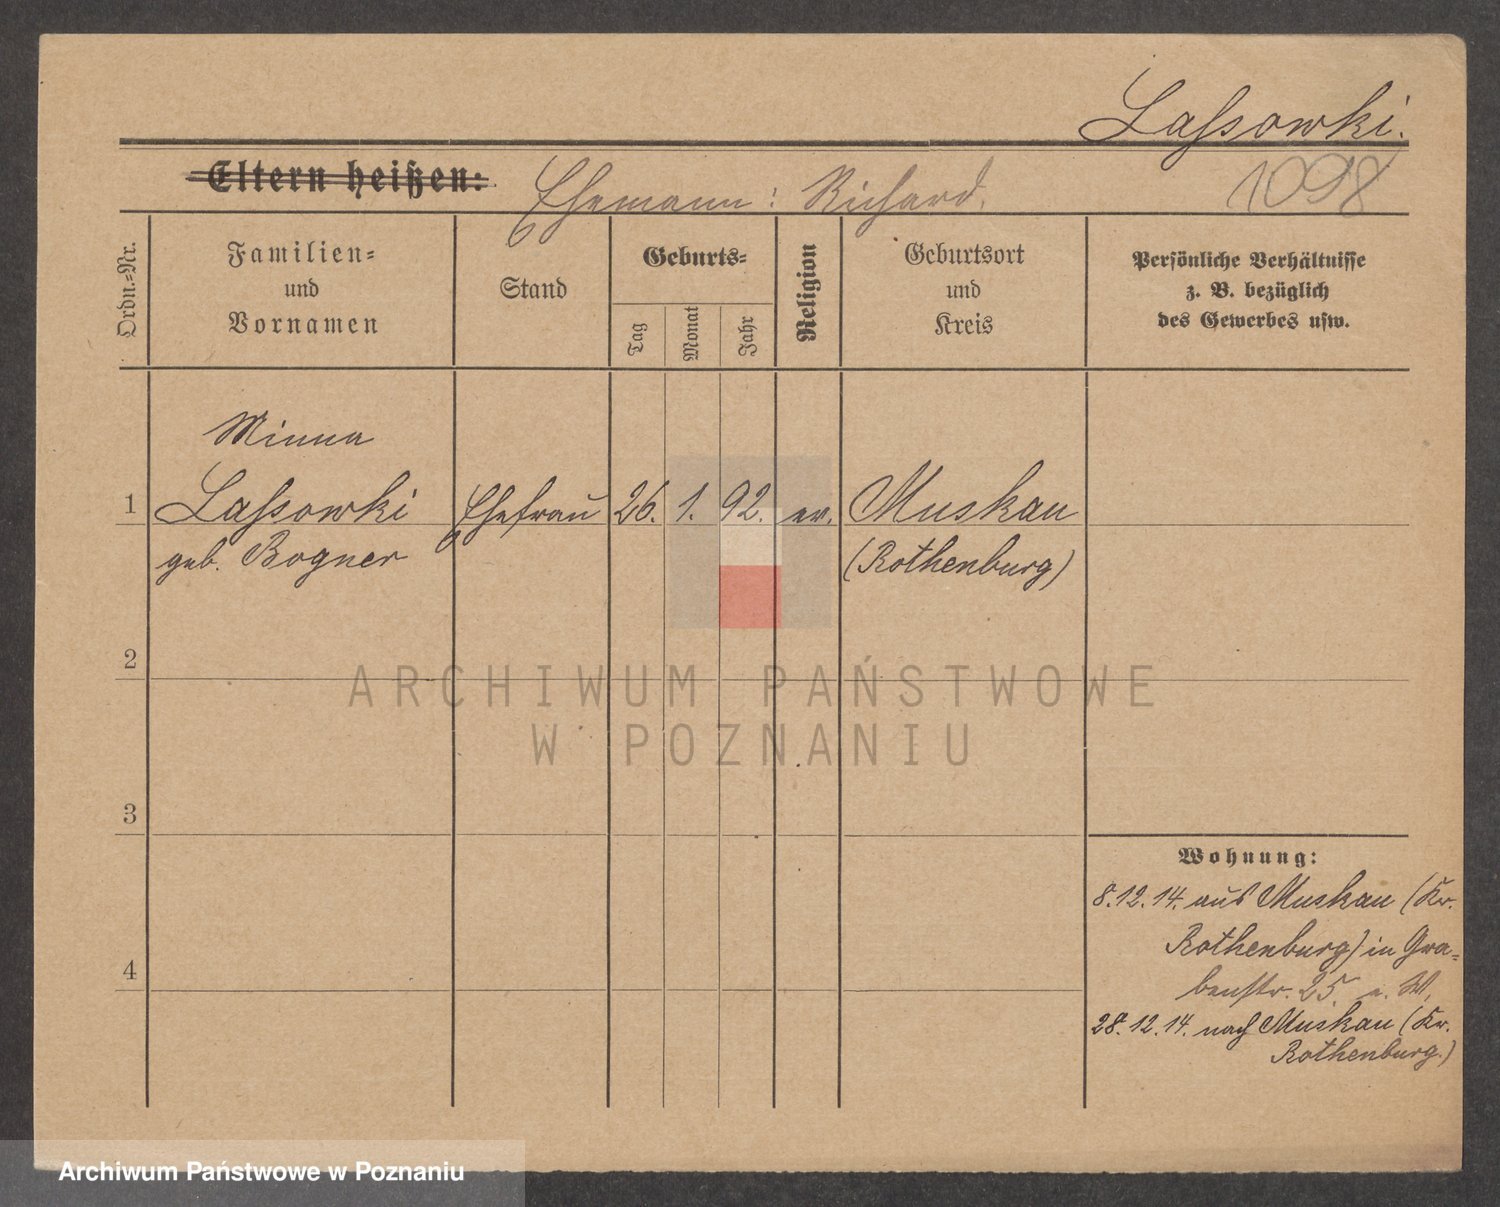 Laſsowki.
1098
Eltern heißen: Ehemann: Richard.
Ordn.-Nr.
Familien-
und
Vornamen
Stand
Geburts-
Tag
Monat
Jahr
Religion
Geburtsort
und
Kreis
Persönliche Verhältnisse
z. B. bezüglich
des Gewerbes usw.
Minna
1 Laſsowki Ehefrau 26. 1. 92. ev. Muskau
geb. Bogner (Rothenburg)
2
ARCHIWUM PAŃSTWOWE
W POZNANIU
3
Wohnung:
8.12.14. aus Muskau (Kr.
Rothenburg) in Gra-
4
benstr. 25. W.
28.12.14. nach Muskau (Kr.
Rothenburg.)
Archiwum Państwowe w Poznaniu